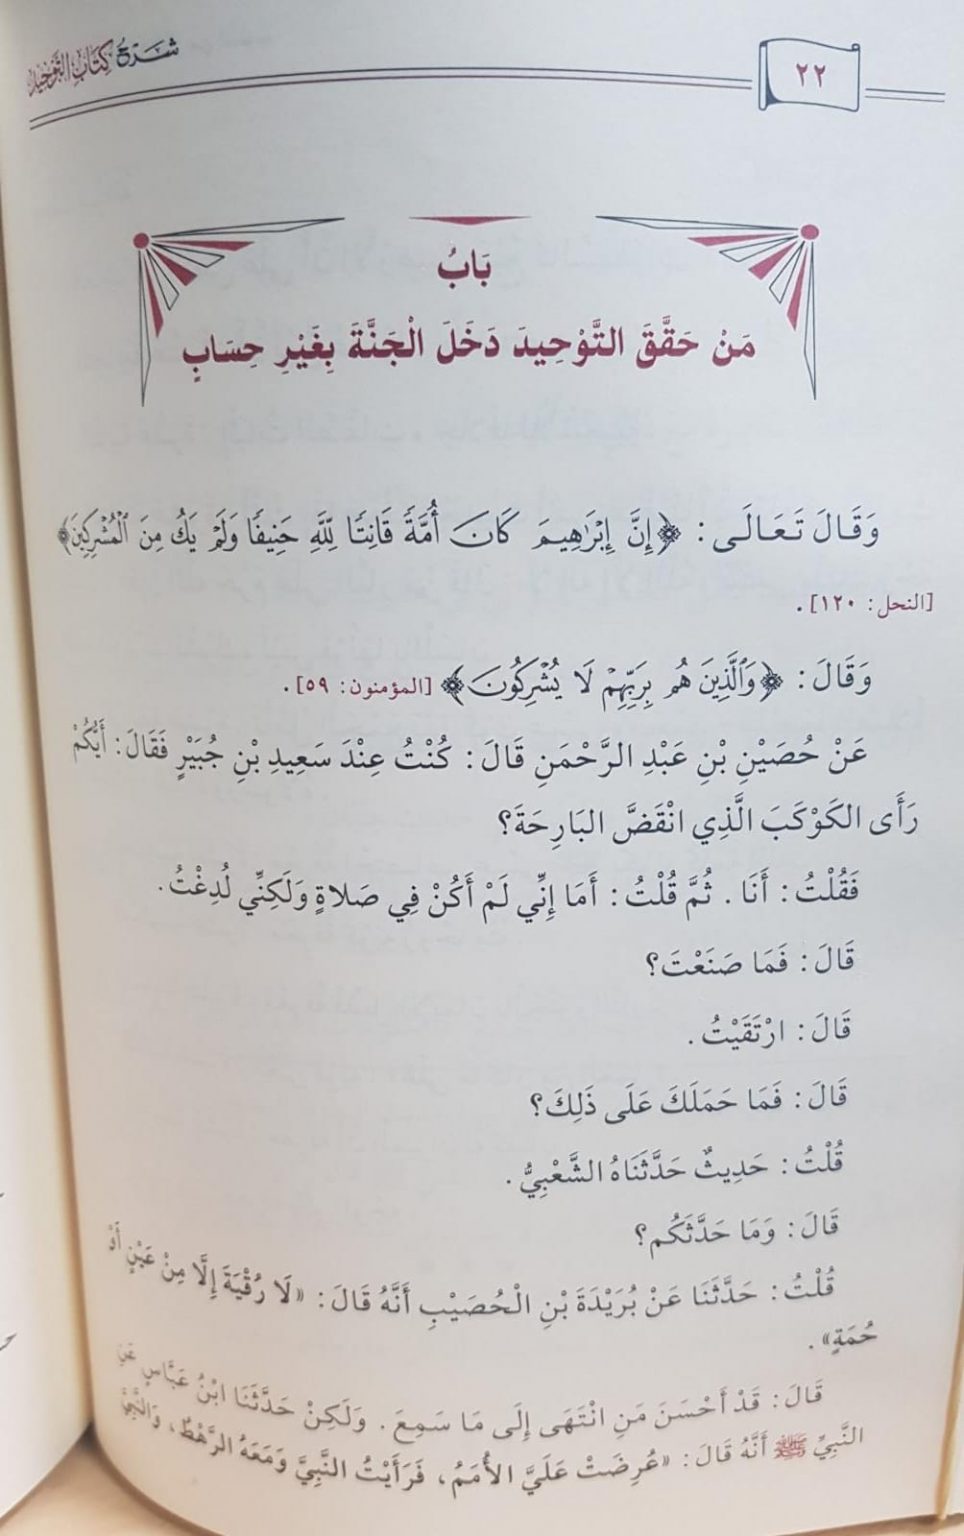 شَرْحُ كِتَابِ التَّوْحِيدِ
٢٢
بَابُ
مَنْ حَقَّقَ التَّوْحِيدَ دَخَلَ الْجَنَّةَ بِغَيْرِ حِسَابٍ
وَقَالَ تَعَالَى: ﴿إِنَّ إِبْرَٰهِيمَ كَانَ أُمَّةً قَانِتًا لِّلَّهِ حَنِيفًا وَلَمْ يَكُ مِنَ ٱلْمُشْرِكِينَ﴾
[النحل: ١٢٠].
وَقَالَ: ﴿وَٱلَّذِينَ هُم بِرَبِّهِمْ لَا يُشْرِكُونَ﴾ [المؤمنون: ٥٩].
عَنْ حُصَيْنِ بْنِ عَبْدِ الرَّحْمَنِ قَالَ: كُنْتُ عِنْدَ سَعِيدِ بْنِ جُبَيْرٍ فَقَالَ: أَيُّكُمْ
رَأَى الكَوْكَبَ الَّذِي انْقَضَّ البَارِحَةَ؟
فَقُلْتُ: أَنَا. ثُمَّ قُلْتُ: أَمَا إِنِّي لَمْ أَكُنْ فِي صَلاةٍ وَلَكِنِّي لُدِغْتُ.
قَالَ: فَمَا صَنَعْتَ؟
قَالَ: ارْتَقَيْتُ.
قَالَ: فَمَا حَمَلَكَ عَلَى ذَلِكَ؟
قُلْتُ: حَدِيثٌ حَدَّثَنَاهُ الشَّعْبِيُّ.
قَالَ: وَمَا حَدَّثَكُم؟
قُلْتُ: حَدَّثَنَا عَنْ بُرَيْدَةَ بْنِ الْحُصَيْبِ أَنَّهُ قَالَ: «لَا رُقْيَةَ إِلَّا مِنْ عَيْنٍ أَوْ
حُمَةٍ».
قَالَ: قَدْ أَحْسَنَ مَنِ انْتَهَى إِلَى مَا سَمِعَ. وَلَكِنْ حَدَّثَنَا ابْنُ عَبَّاسٍ عَنِ
النَّبِيِّ ﷺ أَنَّهُ قَالَ: «عُرِضَتْ عَلَيَّ الأُمَمُ، فَرَأَيْتُ النَّبِيَّ وَمَعَهُ الرَّهْطُ، وَالنَّبِيَّ